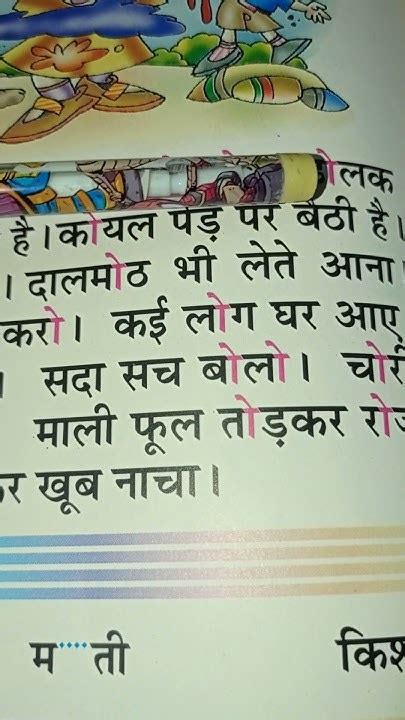 है। कोयल पेड़ पर बैठी है।
। दालमोठ भी लेते आना।
करो। कई लोग घर आए
। सदा सच बोलो। चोरी
माली फूल तोड़कर
खूब नाचा।
म....ती